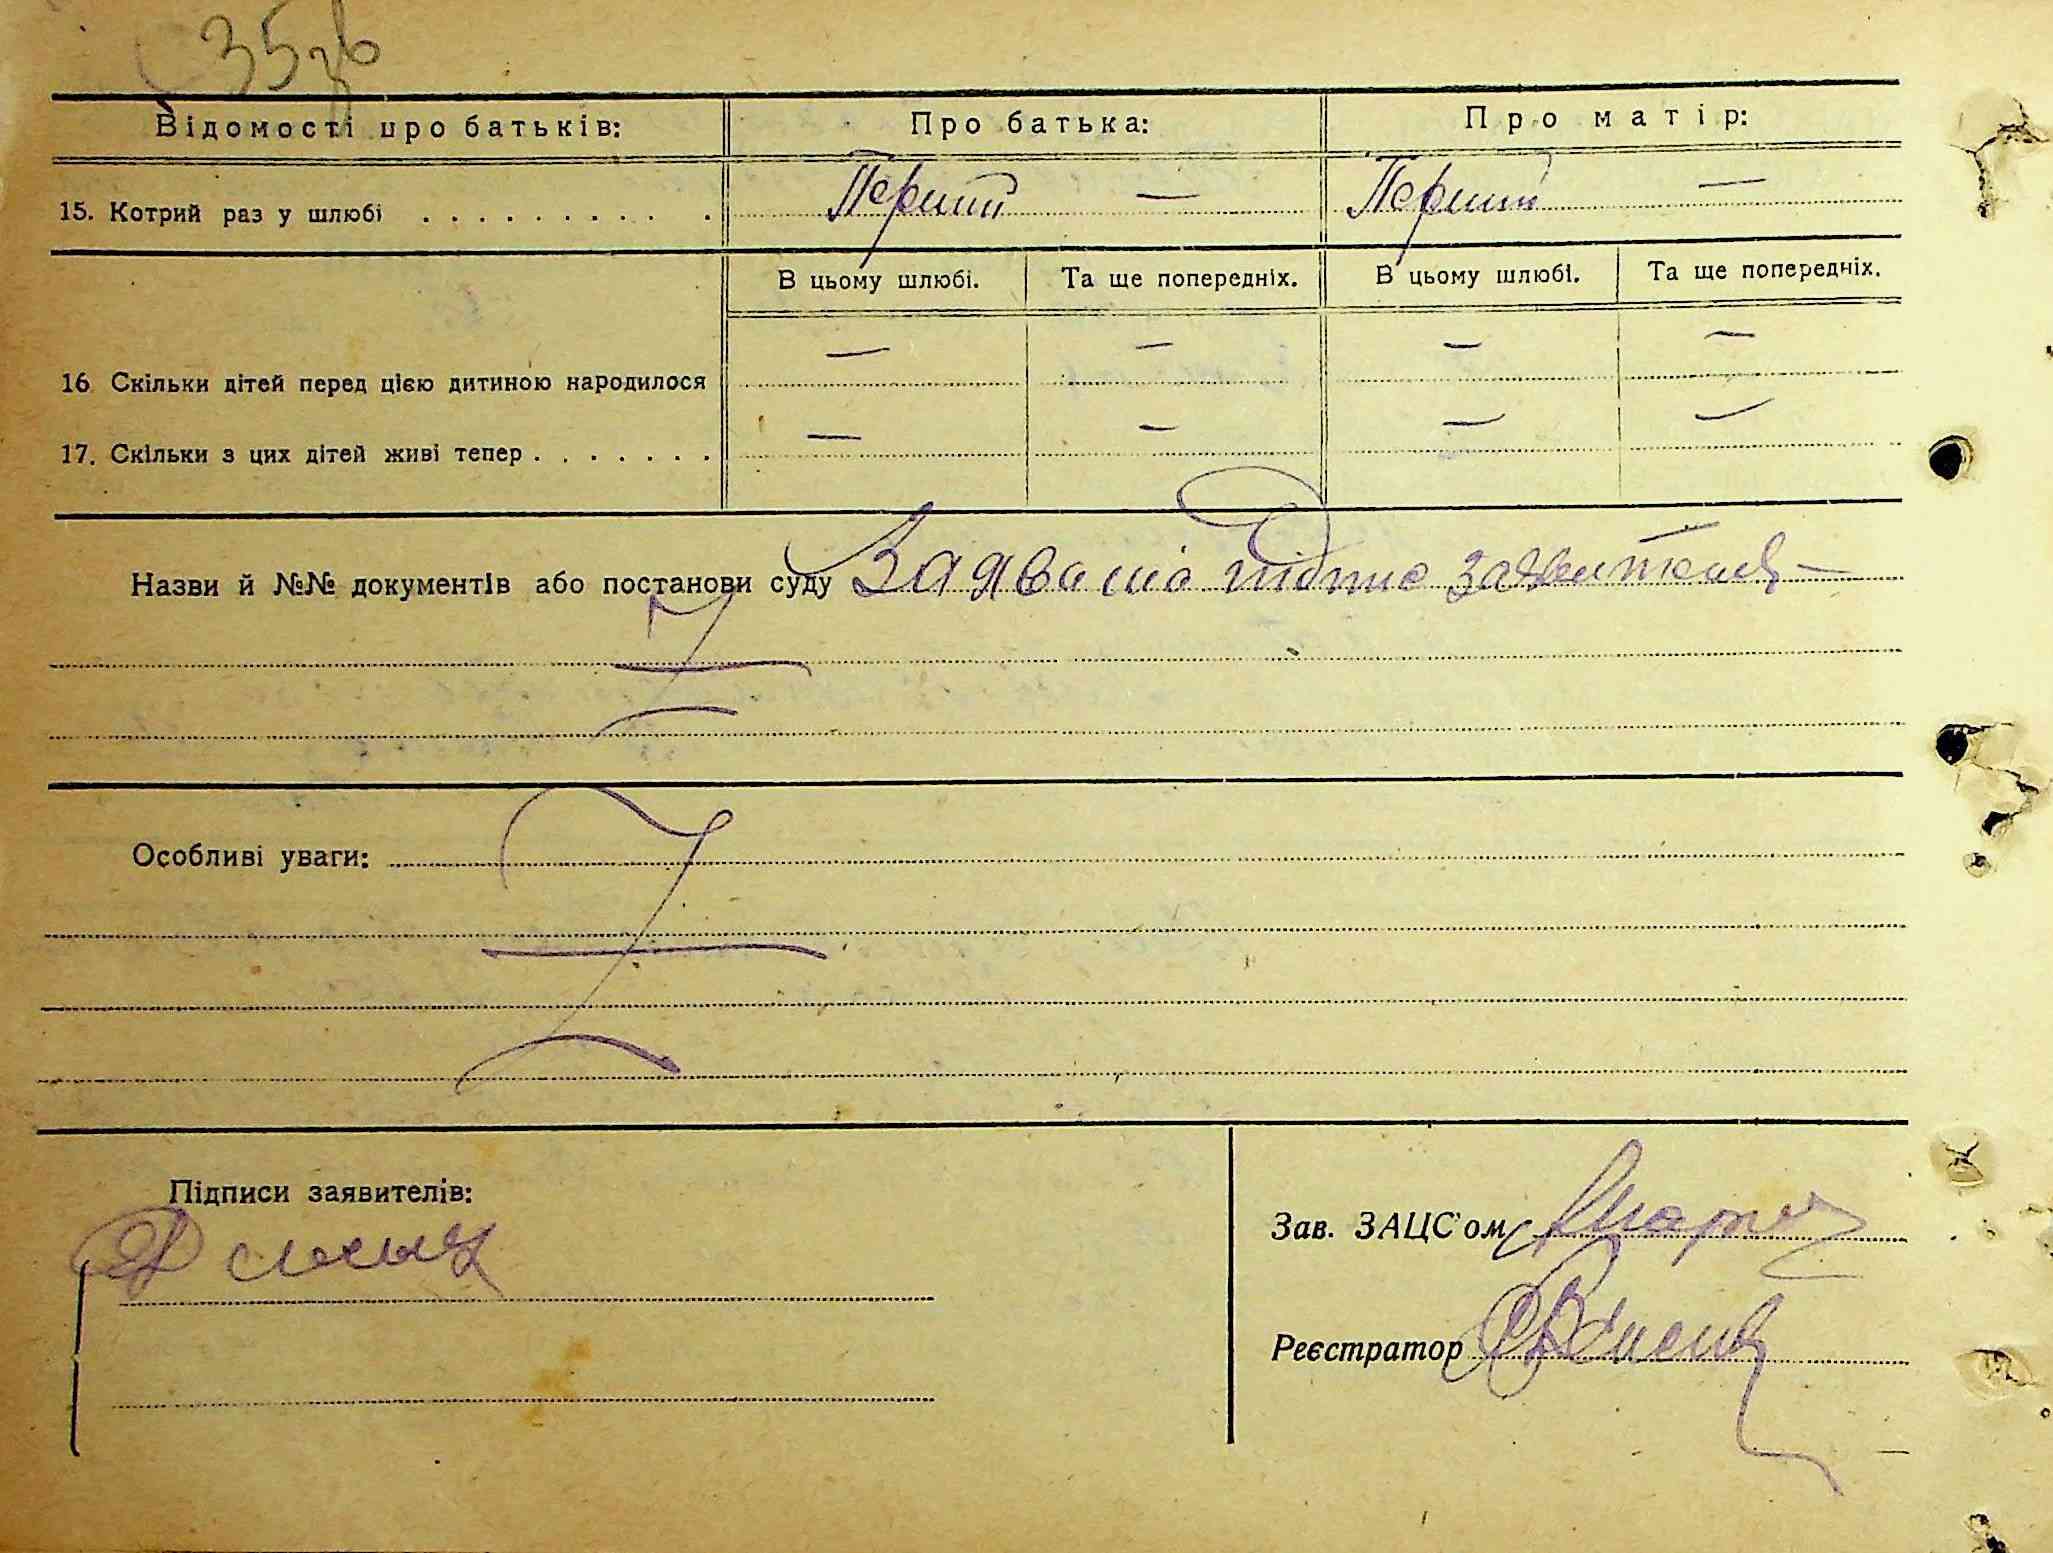 35зв
Відомості про батьків: Про батька: Про матір:
15. Котрий раз у шлюбі . . . . . . . . . . Перший — Перший —
В цьому шлюбі. Та ще попередніх. В цьому шлюбі. Та ще попередніх.
16. Скільки дітей перед цією дитиною народилося — — — —
17. Скільки з цих дітей живі тепер . . . . . . . — — — —
Назви й №№ документів або постанови суду Заява та підпис заявителя —
Особливі уваги:
Підписи заявителів:
Зав. ЗАЦС'ом
Реєстратор